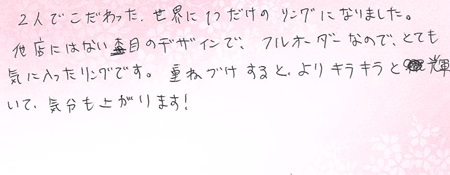 2人でこだわった、世界に1つだけのリングになりました。
他店にはない木目のデザインで、フルオーダーなので、とても
気に入ったリングです。重ねづけすると、よりキラキラと輝
いて、気分も上がります!